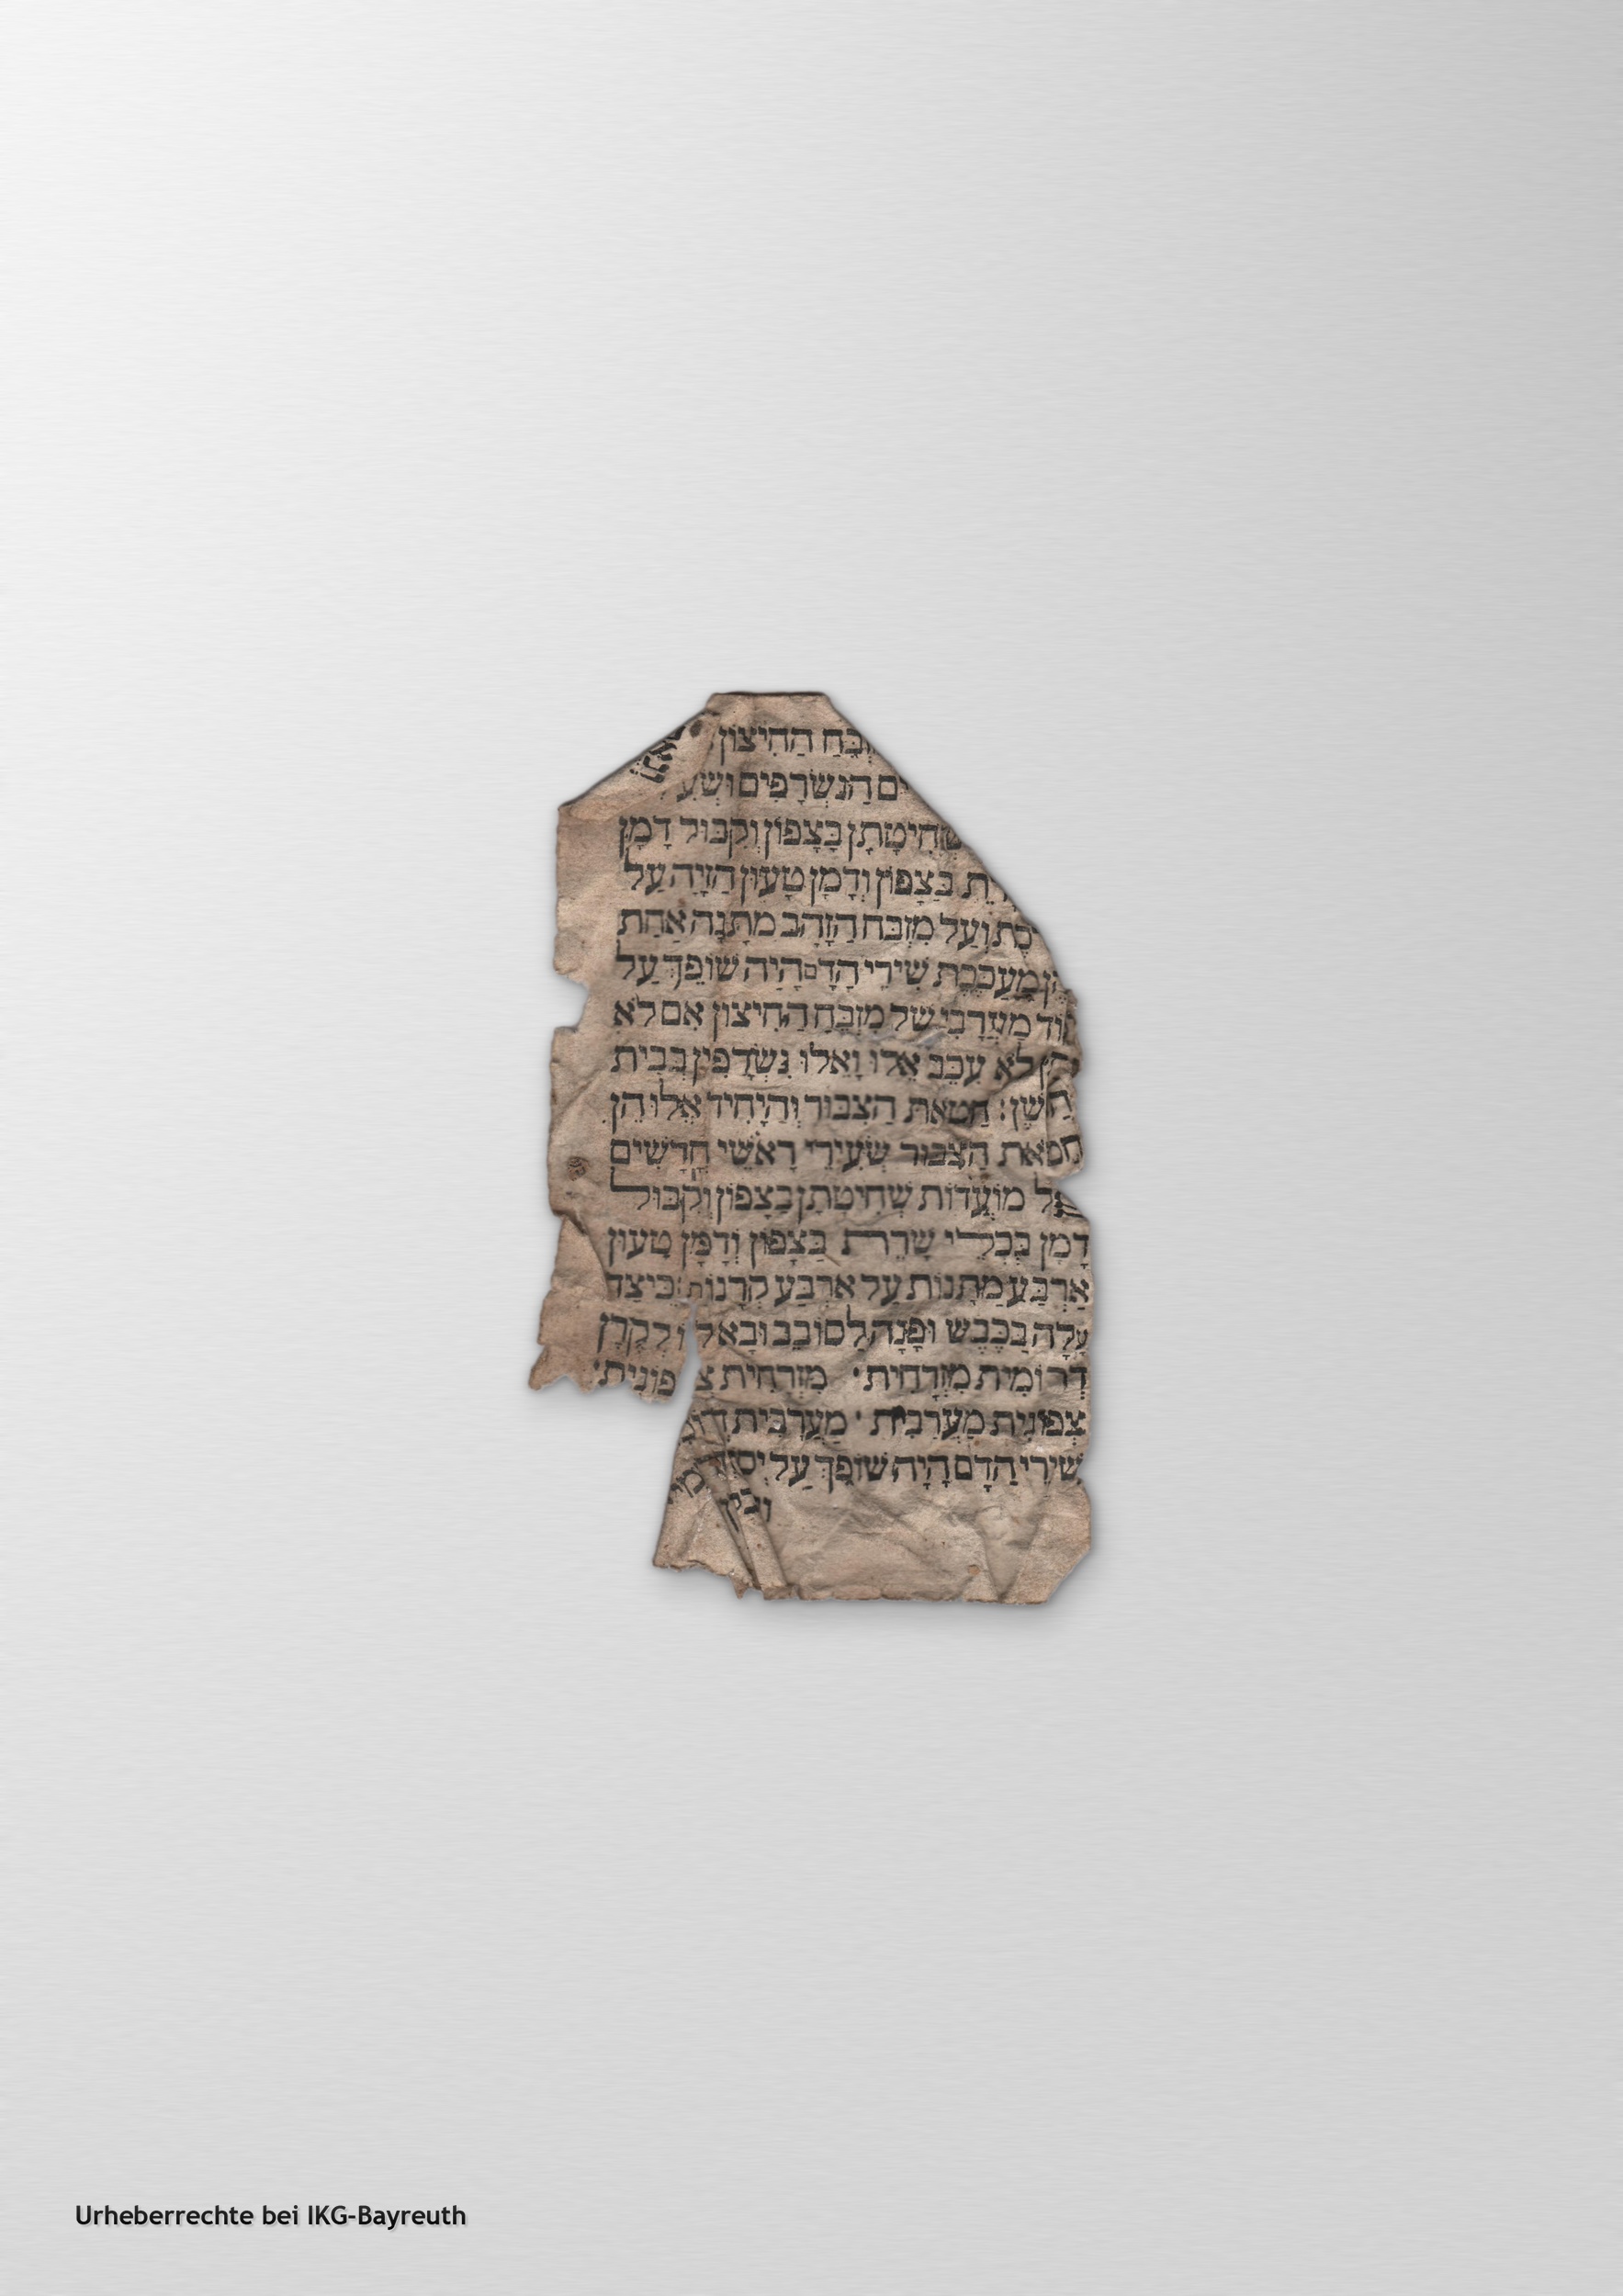 החיצון
הנשרפים
שחיטתן בצפון וקבול דמן
בצפון ודמן טעון הזיה על
ועל מזבח הזהב מתנה אחת
מעככת שירי הדם היה שופך על
מערבי של מזבח החיצון אם לא
לא עכב אלו ואלו נשרפין בבית
חטאת הצבור והיחיד אלו הן
חטאת הצבור שעירי ראשי חדשים
מועדות שחיטתן בצפון וקבול
דמן בכלי שרת בצפון ודמן טעון
ארבע מתנות על ארבע קרנות כיצד
עלה בכבש ופנה לסובב ובא לו לקרן
דרומית מזרחית · מזרחית צפונית ·
צפונית מערבית · מערבית
שירי הדם היה שופך על
ובין
Urheberrechte bei IKG-Bayreuth